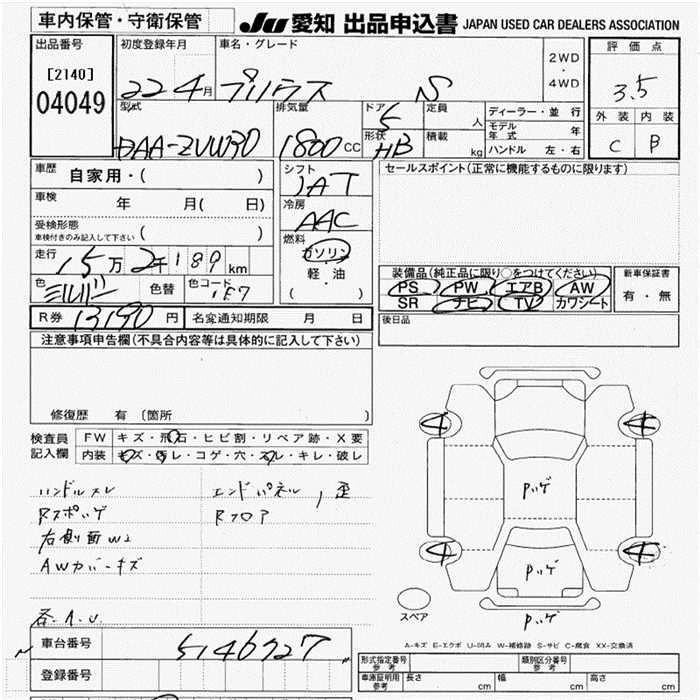 車内保管・守衛保管
JU 愛知 出品申込書 JAPAN USED CAR DEALERS ASSOCIATION
出品番号
[2140]
04049
初度登録年月
22 4月
車名・グレード
プリウス S
2WD
・
4WD
評価点
3.5
外装 内装
C B
型式
DAA-ZVW30
排気量
1800 CC
ドア
5
形状
HB
定員
人
積載
kg
ディーラー・並行
モデル年式 年
ハンドル 左・右
車歴
自家用・( )
車検
年 月( 日)
受検形態
車検付きのみ記入して下さい ( )
走行
15万2千189km
色
シルバー
色替
色コード
1F7
R券 13190円
名変通知期限 月 日
シフト
IAT
冷房
AAC
燃料
ガソリン
軽・油
( )
セールスポイント(正常に機能するものに限ります)
装備品(純正品に限り○をつけてください)
PS PW エアB AW
SR ナビ TV カワシート
新車保証書
有・無
後日品
注意事項申告欄(不具合内容等は具体的に記入して下さい)
修復歴 有 〔箇所 〕
検査員
記入欄
FW キズ・飛石・ヒビ割・リペア跡・X要
内装 キズ・汚レ・コゲ・穴・スレ・キレ・破レ
ハンドルスレ
Rスポハゲ
右側面W2
AWカバーキズ
各・A.U.
エンドパネル,歪
Rフロア
4
4
4
4
Pハゲ
Pハゲ
Pハゲ
スペア
A-キズ E-エクボ U-凹み W-補修跡 S-サビ C-腐食 XX-交換済
車台番号
5146727
登録番号
形式指定番号
参考
類別区分番号
参考
車庫証明用
参考
長さ cm
幅 cm
高さ cm